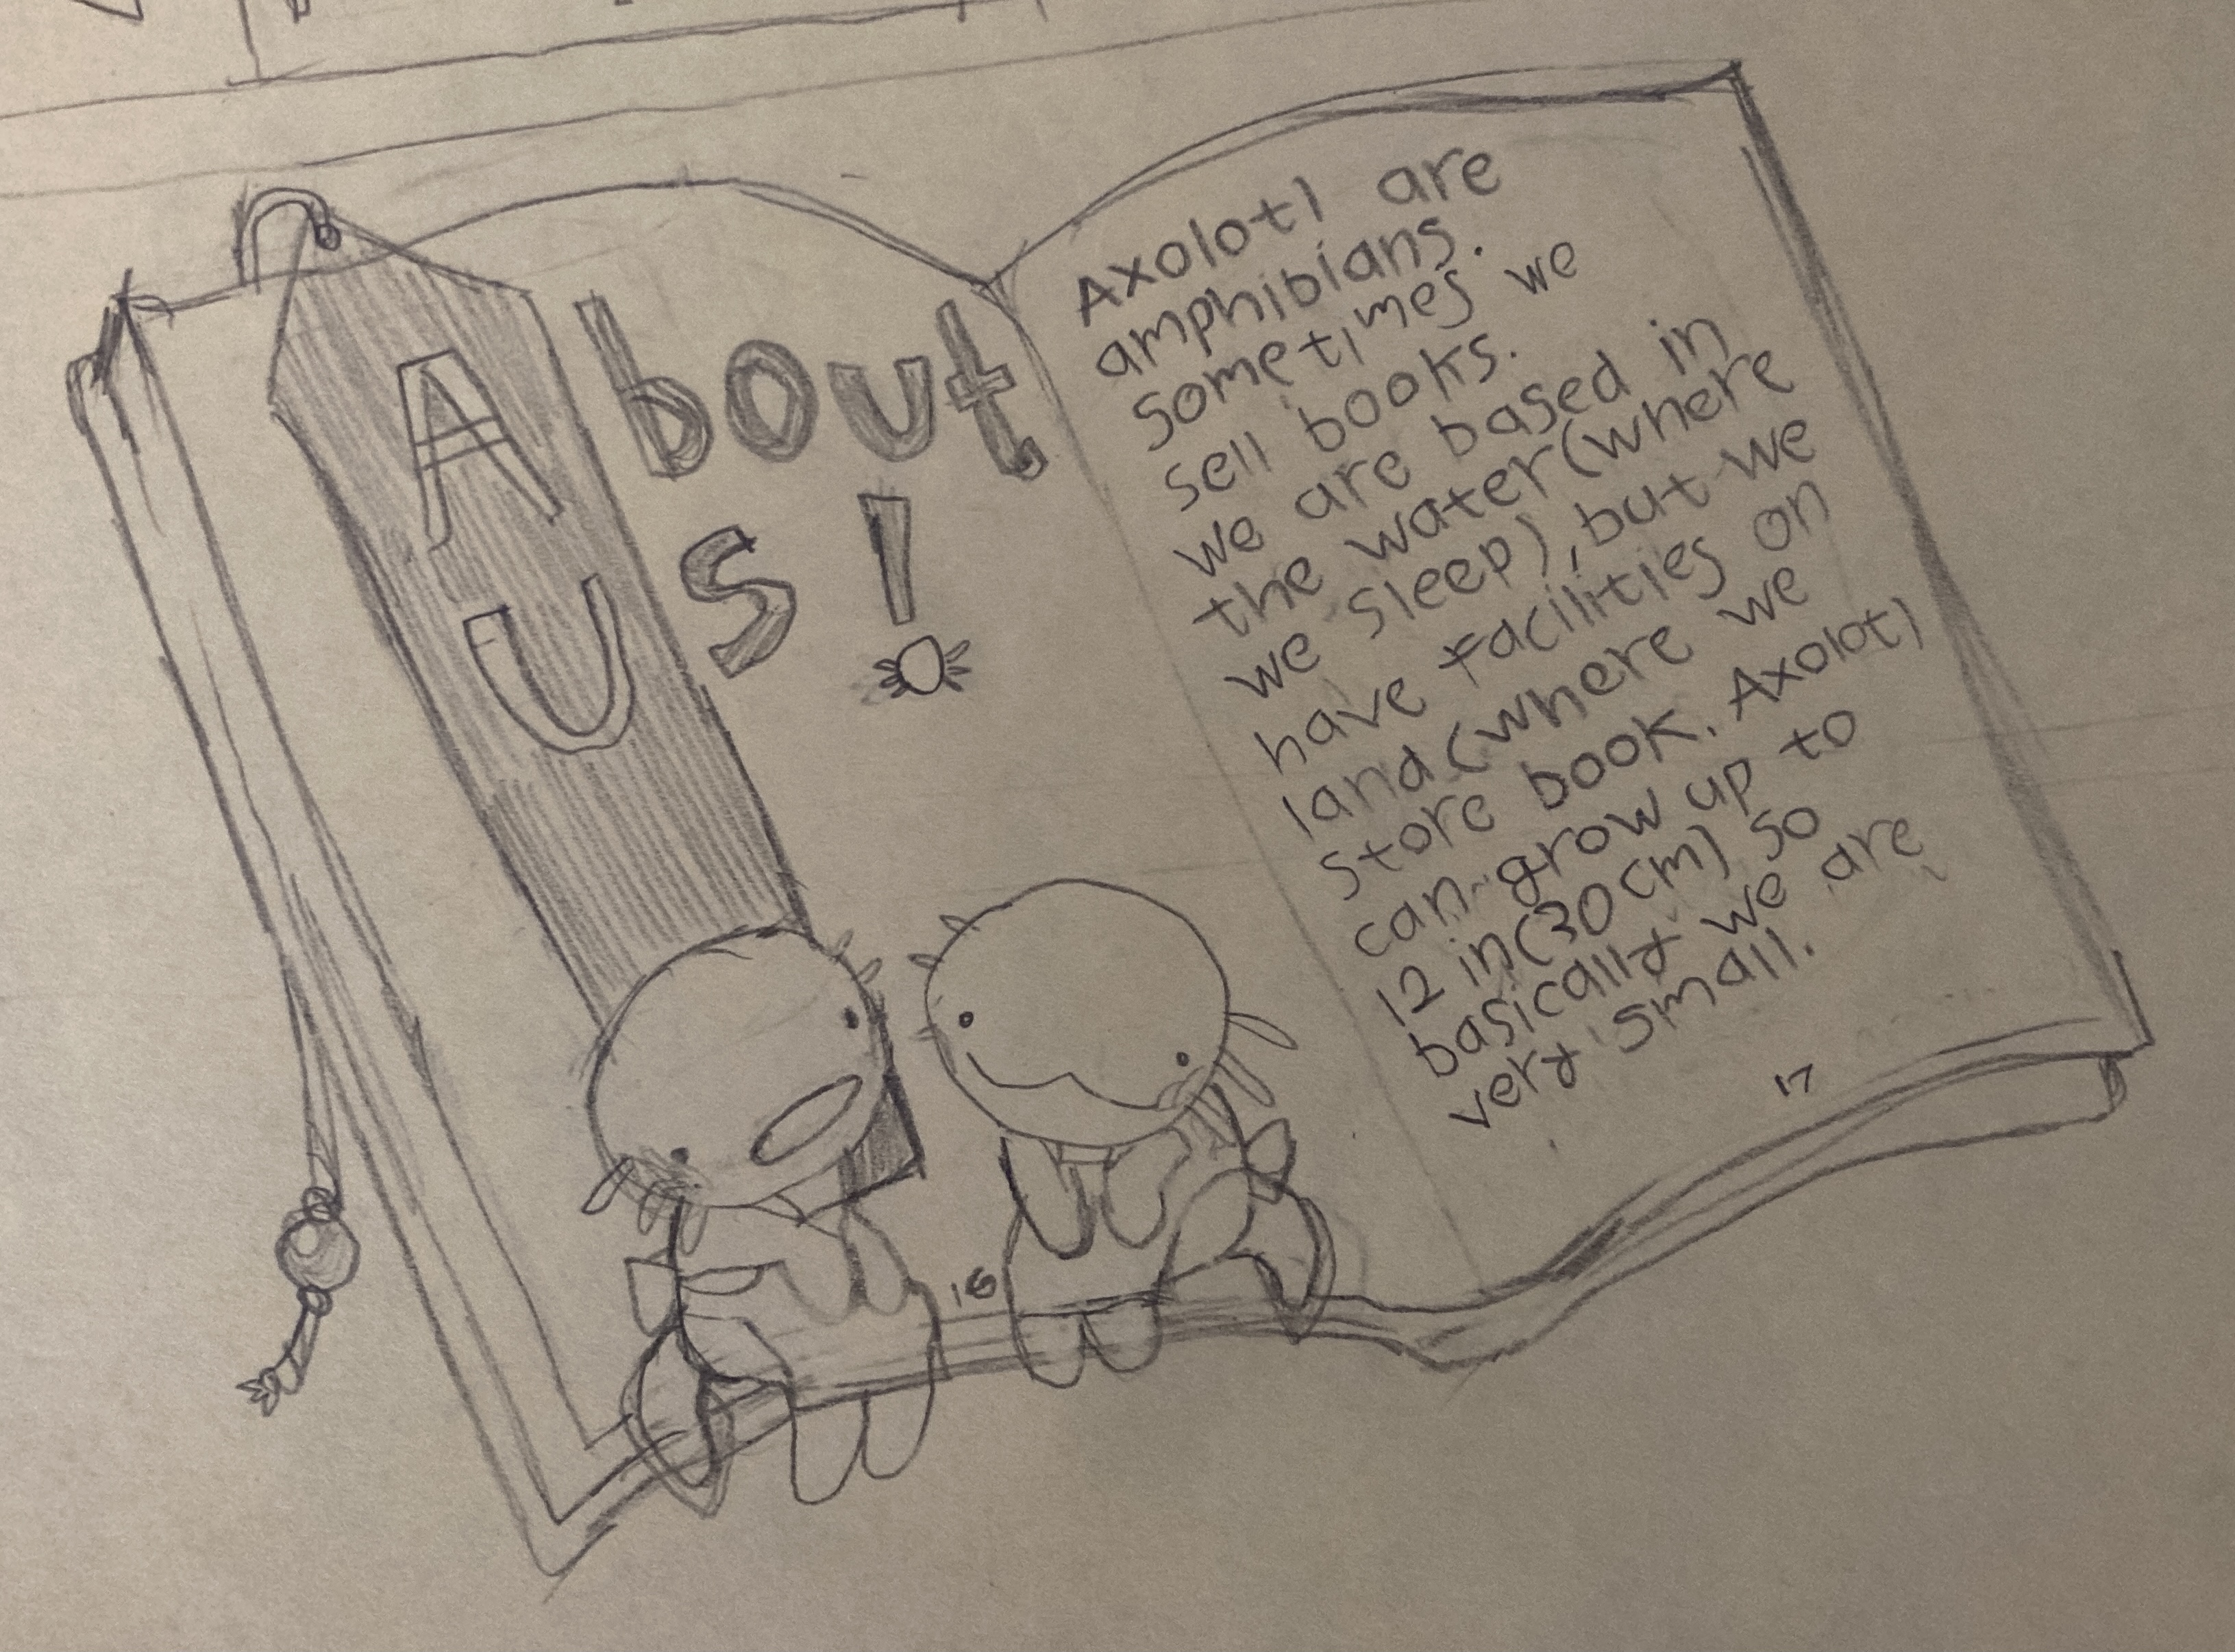 About
US!
Axolotl are
amphibians.
sometimes we
sell books.
we are based in
the water(where
we sleep), but we
have facilities on
land(where we
store book. Axolotl
can grow up to
12 in(30cm) so
basically we are
very small.
16
17